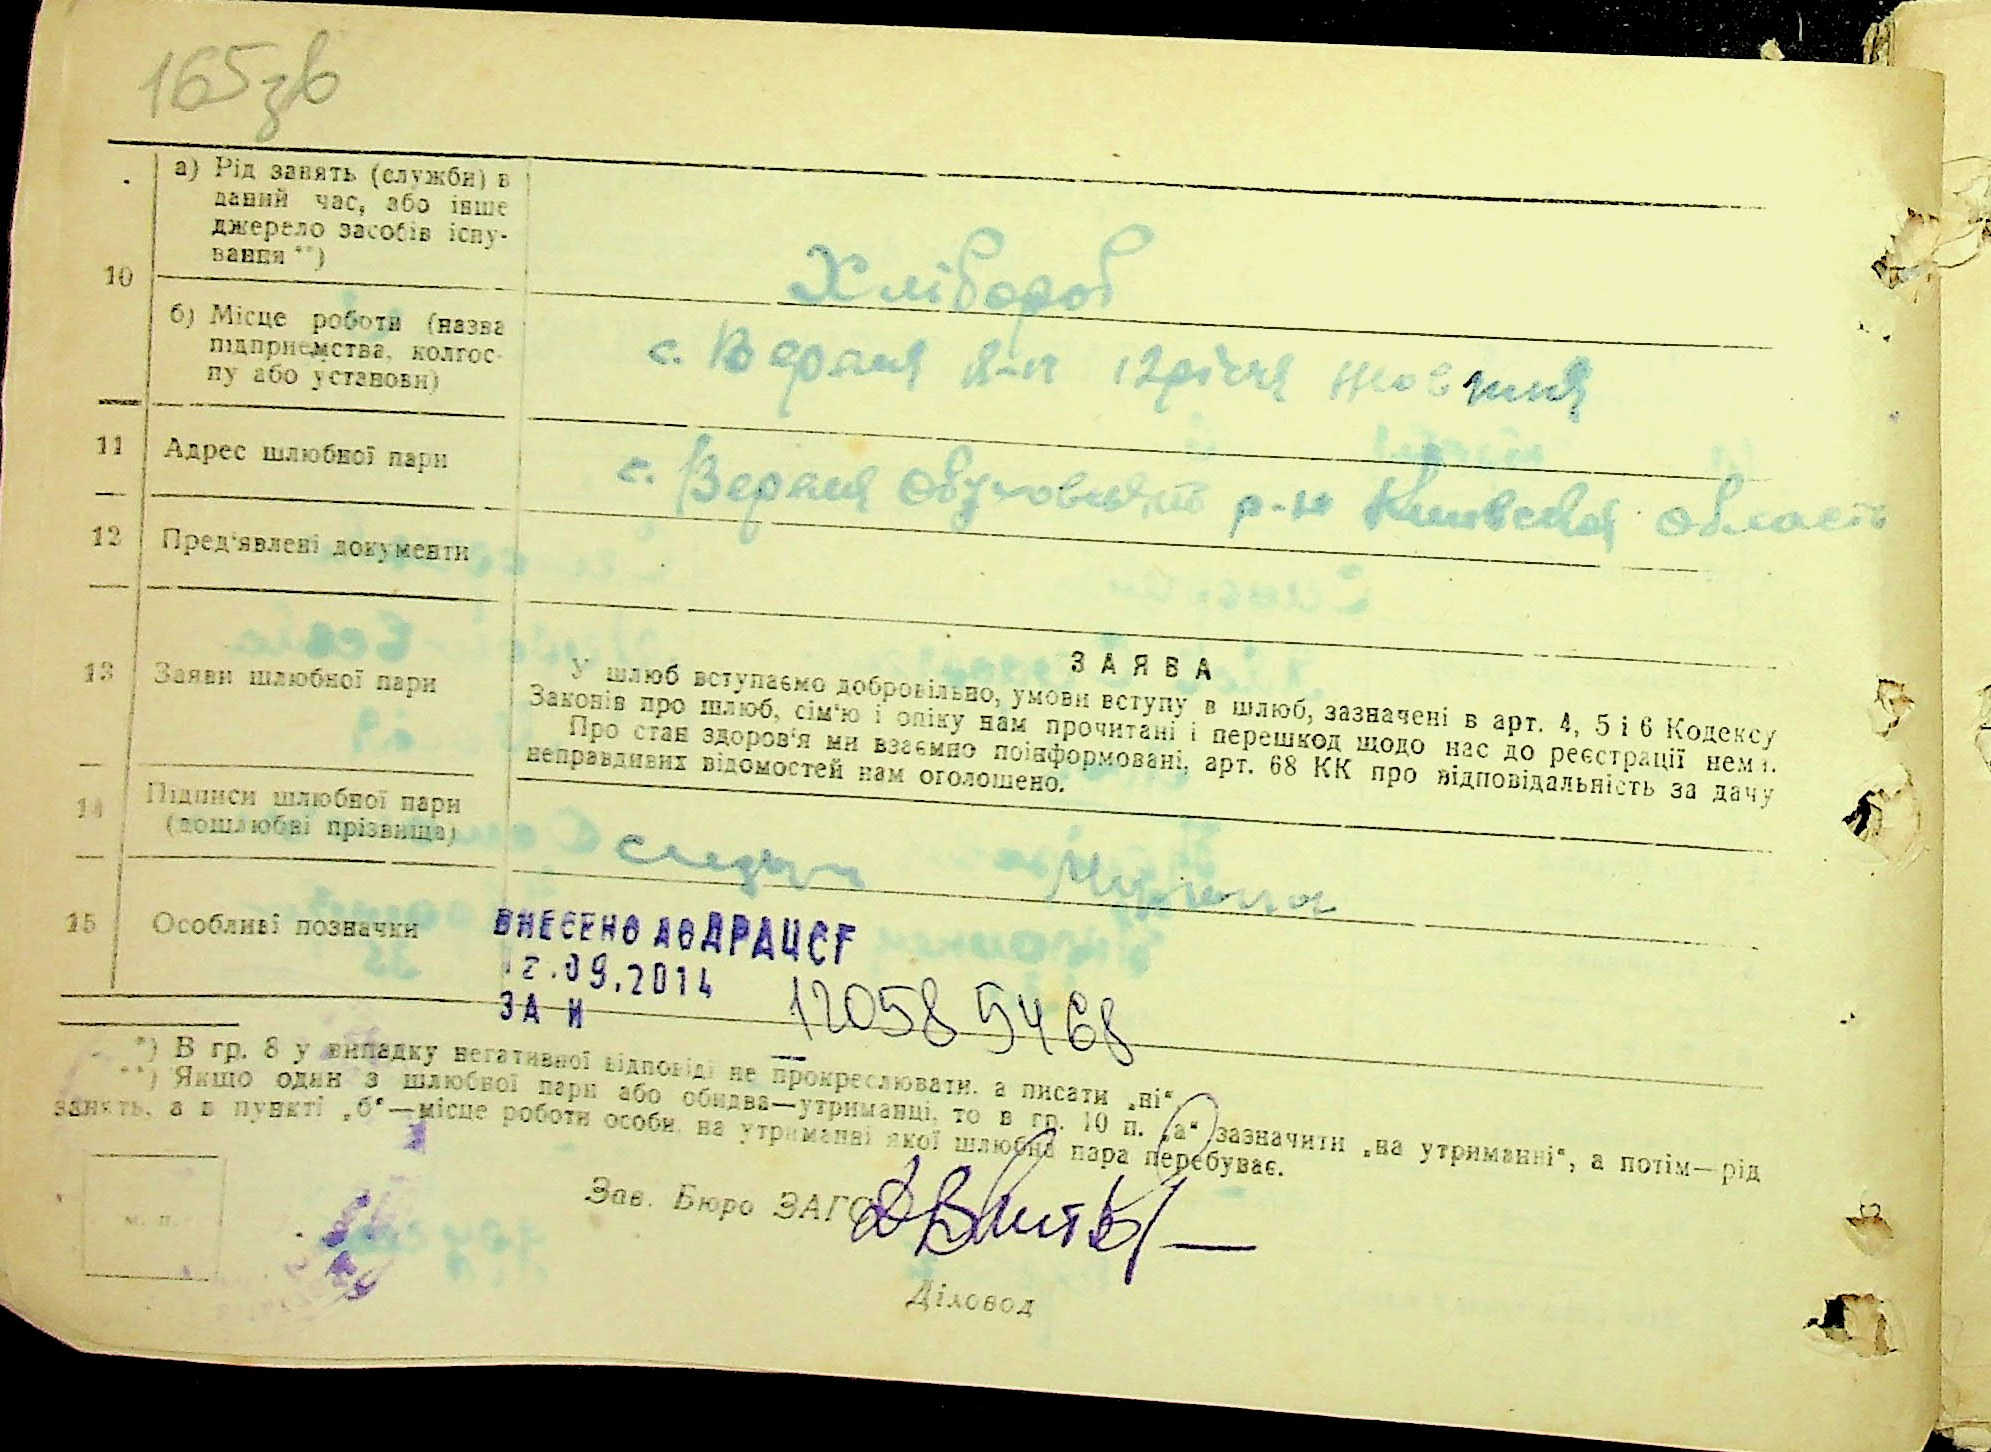 165зв
10
а) Рід занять (служби) в
даний час, або інше
джерело засобів існу-
вання **)
Хлібороб
б) Місце роботи (назва
підприємства, колгос-
пу або установи)
с. Верем'я к-п 12річчя жовтня
11
Адрес шлюбної пари
с. Верем'я Обуховський р-н Київська область
12
Пред'явлені документи
13
Заяви шлюбної пари
ЗАЯВА
У шлюб вступаємо добровільно, умови вступу в шлюб, зазначені в арт. 4, 5 і 6 Кодексу
Законів про шлюб, сім'ю і опіку нам прочитані і перешкод щодо нас до реєстрації нема.
Про стан здоров'я ми взаємно поінформовані, арт. 68 КК про відповідальність за дачу
неправдивих відомостей нам оголошено.
14
Підписи шлюбної пари
(дошлюбні прізвища)
15
Особливі позначки
ВНЕСЕНО ДО ДРАЦСГ
12.09.2014
ЗА №
120585468
*) В гр. 8 у випадку негативної відповіді не прокреслювати, а писати „ні“
**) Якщо один з шлюбної пари або обидва—утриманці, то в гр. 10 п. „а“ зазначити „на утриманні“, а потім—рід
занять, а в пункті „б“—місце роботи особи, на утриманні якої шлюбна пара перебуває.
м. п.
Зав. Бюро ЗАГС
Діловод